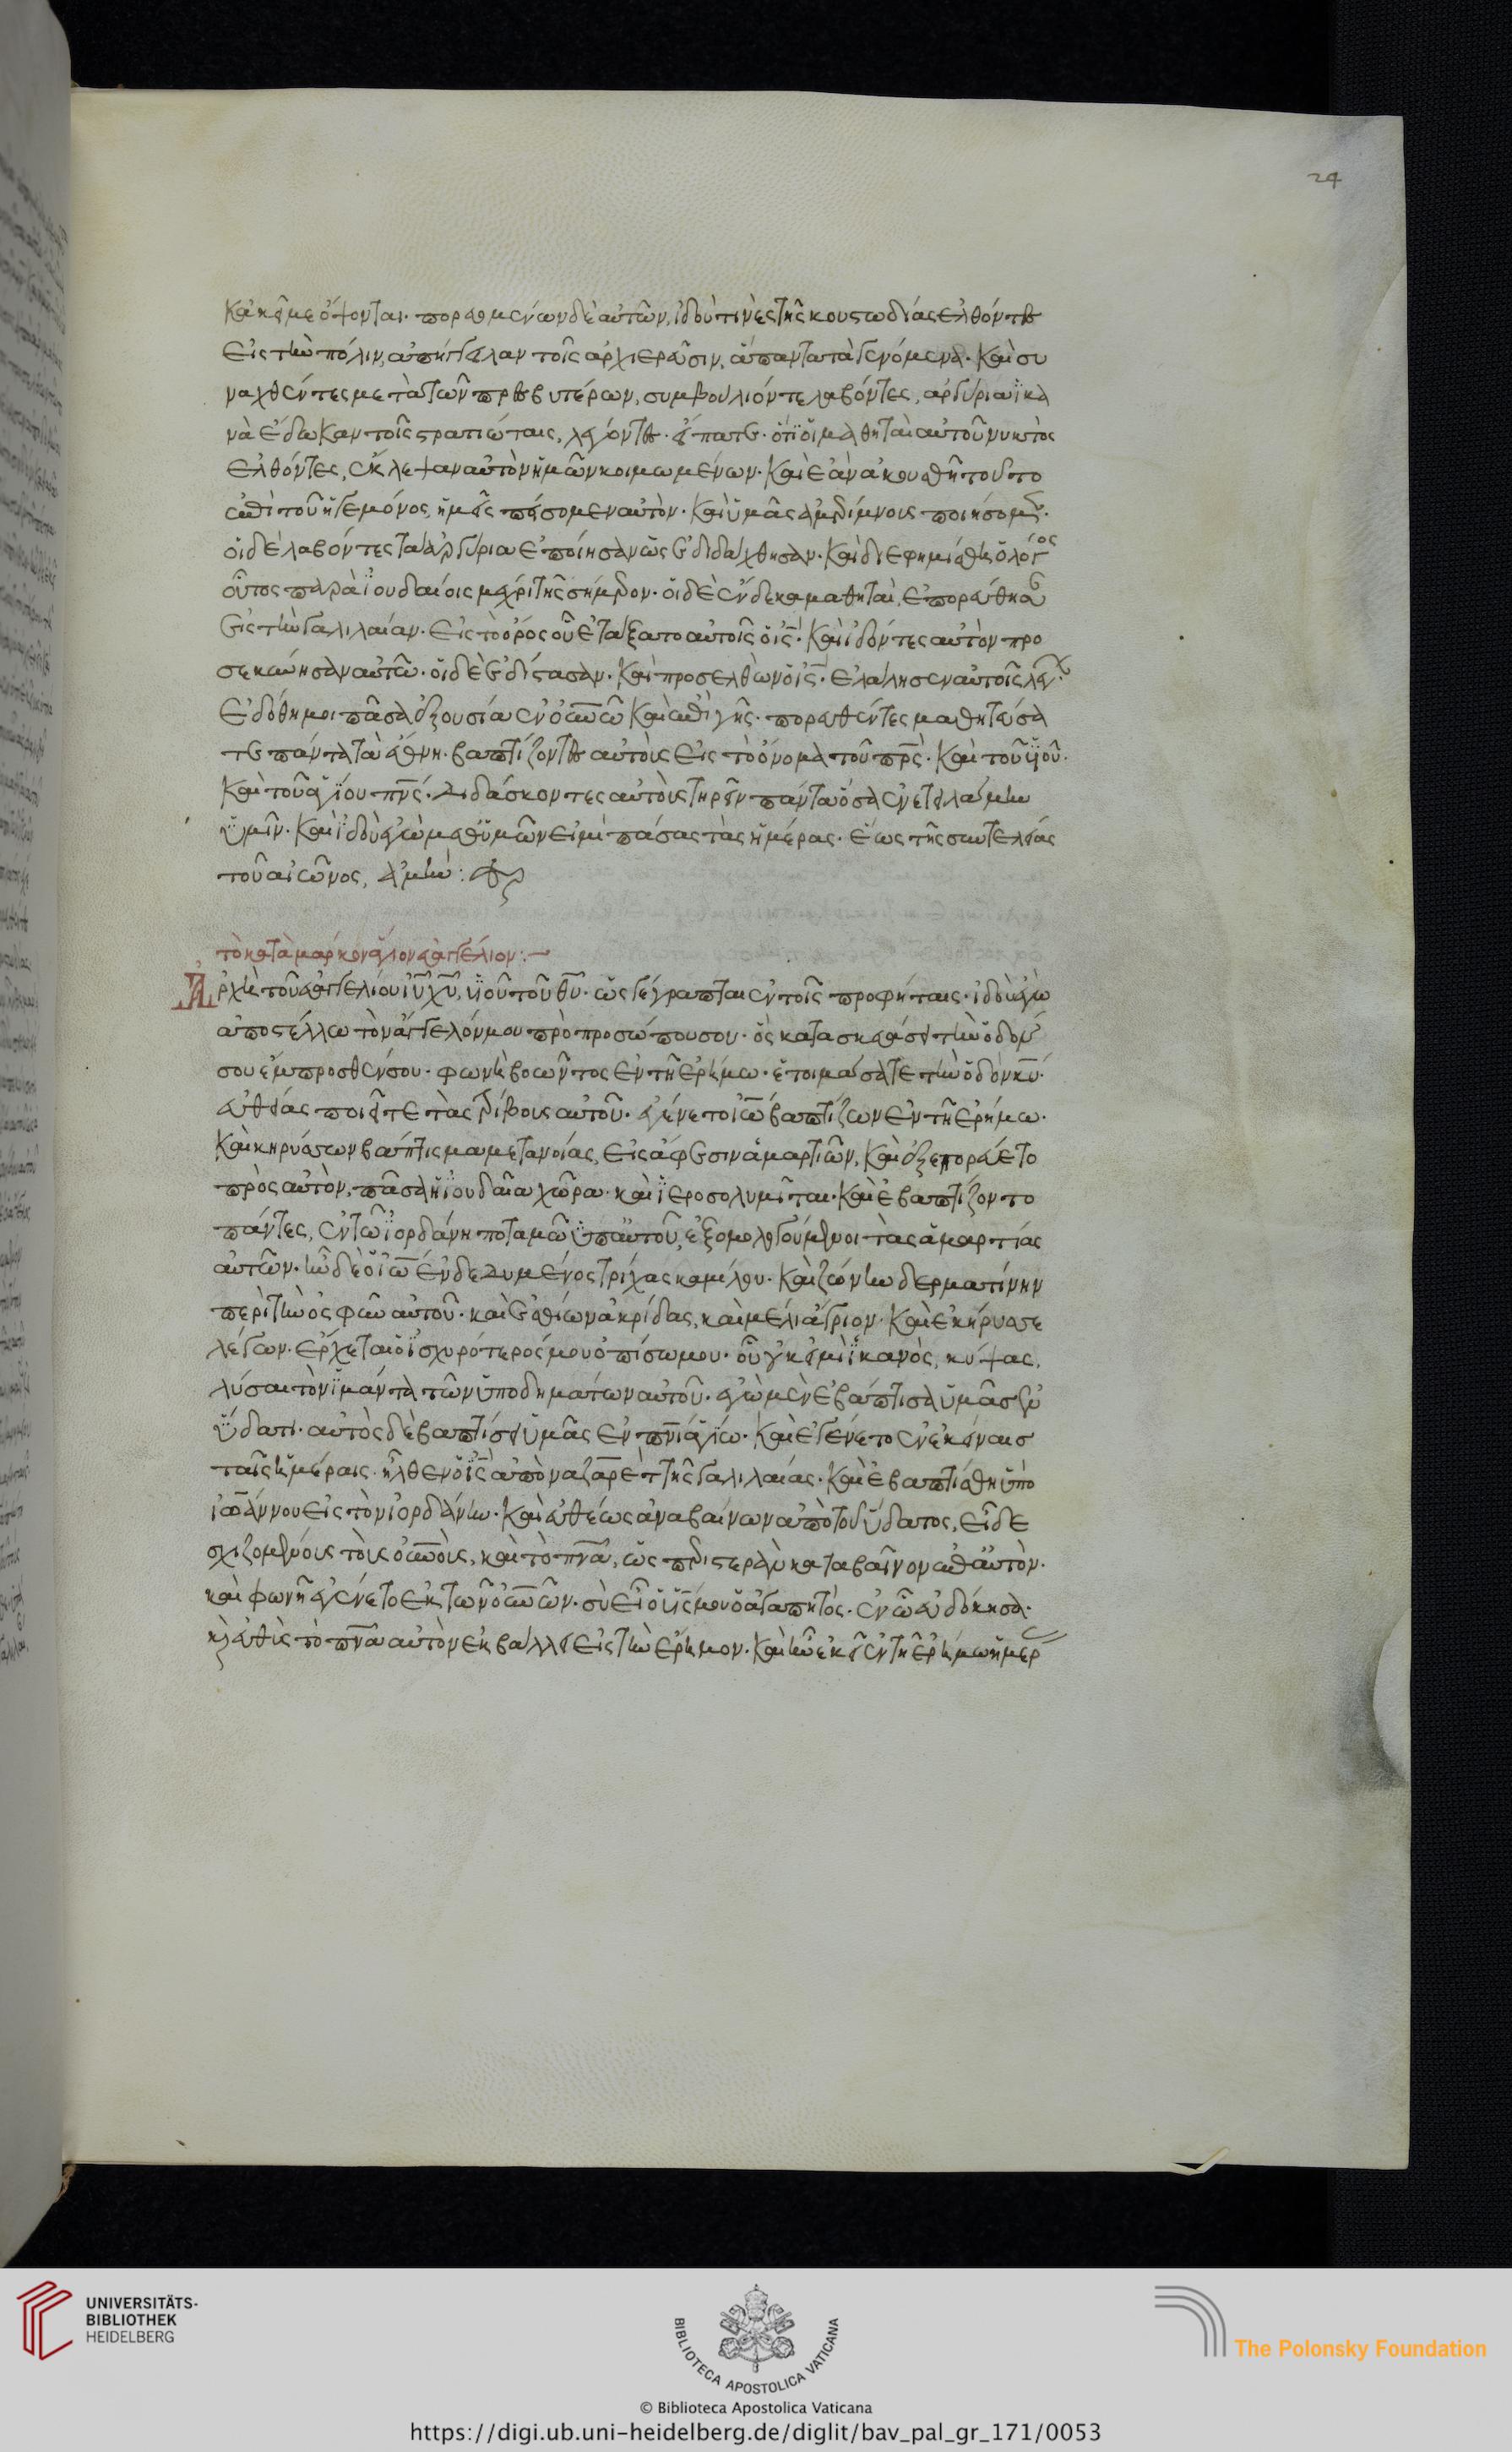 24
κἀκεῖ με ὄψονται· πορευομένων δὲ αὐτῶν, ἰδού τινὲς τῆς κουστωδίας ἐλθόντες
εἰς τὴν πόλιν, ἀπήγγειλαν τοῖς ἀρχιερεῦσιν, ἅπαντα τὰ γενόμενα· καὶ συ
ναχθέντες μετὰ τῶν πρεσβυτέρων, συμβούλιόν τε λαβόντες, ἀργύρια ἱκα
νὰ ἔδωκαν τοῖς στρατιώταις, λέγοντες· εἴπατε· ὅτι οἱ μαθηταὶ αὐτοῦ νυκτὸς
ἐλθόντες, ἔκλεψαν αὐτὸν ἡμῶν κοιμωμένων· καὶ ἐὰν ἀκουσθῆ τοῦτο
ἐπὶ τοῦ ἡγεμόνος, ἡμεῖς πείσομεν αὐτὸν· καὶ ὑμᾶς ἀμερίμνους ποιήσομεν·
οἱ δὲ λαβόντες τὰ ἀργύρια ἐποίησαν ὡς ἐδιδάχθησαν· καὶ διεφημίσθη ὁ λόγος
οὗτος παρὰ ἰουδαίοις μέχρι τῆς σήμερον· οἱ δὲ ἕνδεκα μαθηταὶ, ἐπορεύθησαν
εἰς τὴν γαλιλαίαν· εἰς τὸ ὄρος οὗ ἐτάξατο αὐτοῖς ὁ ις· καὶ ἰδόντες αὐτὸν προ
σεκύνησαν αὐτῶ· οἱ δὲ ἐδίστασαν· καὶ προσελθὼν ὁ ις· ἐλάλησεν αὐτοῖς λέγων·
ἐδόθη μοι πᾶσα ἐξουσία ἐν οὐνω καὶ ἐπὶ γῆς· πορευθέντες μαθητεύσα
τε πάντα τὰ ἔθνη· βαπτίζοντες αὐτοὺς εἰς τὸ ὄνομα τοῦ πρς· καὶ τοῦ υἱοῦ·
καὶ τοῦ ἁγίου πνς· διδάσκοντες αὐτοὺς τηρεῖν πάντα ὅσα ἐνετειλάμην
ὑμῖν· καὶ ἰδοὺ ἐγὼ μεθ ὑμῶν εἰμὶ πάσας τὰς ἡμέρας· ἕως τῆς συντελείας
τοῦ αἰῶνος, ἀμήν:
τὸ κατὰ μάρκον ἅγιον εὐαγγέλιον:
Ἀρχὴ τοῦ εὐαγγελίου ιυ χυ, υἱοῦ τοῦ θυ· ὡς γέγραπται ἐν τοῖς προφήταις· ἰδοὺ ἐγὼ
ἀποστέλλω τὸν ἄγγελόν μου πρὸ προσώπου σου· ὃς κατασκευάσει τὴν ὁδόν
σου ἔμπροσθέν σου· φωνὴ βοῶντος ἐν τῆ ἐρήμω· ἑτοιμάσατε τὴν ὁδὸν κυ·
εὐθείας ποιεῖτε τὰς τρίβους αὐτοῦ· ἐγένετο ιω βαπτίζων ἐν τῆ ἐρήμω·
καὶ κηρύσσων βάπτισμα μετανοίας, εἰς ἄφεσιν ἁμαρτιῶν, καὶ ἐξεπορεύετο
πρὸς αὐτὸν, πᾶσα ἡ ἰουδαία χώρα· καὶ ἱεροσολυμῖται· καὶ ἐβαπτίζοντο
πάντες, ἐν τῶ ἰορδάνη ποταμῶ ὑπ αὐτοῦ, ἐξομολογούμενοι τὰς ἁμαρτίας
αὐτῶν· ἦν δὲ ὁ ιω ἐνδεδυμένος τρίχας καμήλου· καὶ ζώνην δερματίνην
περὶ τὴν ὀσφὺν αὐτοῦ· καὶ ἐσθίων ἀκρίδας, καὶ μέλι ἄγριον· καὶ ἐκήρυσσε
λέγων· ἔρχεται ὁ ἰσχυρότερός μου ὀπίσω μου· οὗ οὐκ εἰμὶ ἱκανὸς, κύψας,
λῦσαι τὸν ἱμάντα τῶν ὑποδημάτων αὐτοῦ· ἐγὼ μὲν ἐβάπτισα ὑμᾶς ἐν
ὕδατι· αὐτὸς δὲ βαπτίσει ὑμᾶς ἐν πνι ἁγίω· καὶ ἐγένετο ἐν ἐκείναισ
ταῖς ἡμέραις· ἦλθεν ὁ ις ἀπὸ ναζαρὲτ τῆς γαλιλαίας· καὶ ἐβαπτίσθη ὑπὸ
ἰωάννου εἰς τὸν ἰορδάνην· καὶ εὐθέως ἀναβαίνων ἀπὸ τοῦ ὕδατος, εἶδε
σχιζομένους τοὺς οὐνοὺς, καὶ τὸ πνα, ὡς περιστερὰν καταβαῖνον ἐπ αὐτὸν·
καὶ φωνὴ ἐγένετο ἐκ τῶν οὐνῶν· σὺ εἶ ὁ υἱς μου ὁ ἀγαπητὸς· ἐν ὧ εὐδόκησα·
κ εὐθὺς τὸ πνα αὐτὸν ἐκβάλλει εἰς τὴν ἔρημον· καὶ ἦν ἐκεῖ ἐν τῆ ἐρήμω ἡμέρ
UNIVERSITÄTS-
BIBLIOTHEK
HEIDELBERG
BIBLIOTECA APOSTOLICA VATICANA
The Polonsky Foundation
© Biblioteca Apostolica Vaticana
https://digi.ub.uni-heidelberg.de/diglit/bav_pal_gr_171/0053